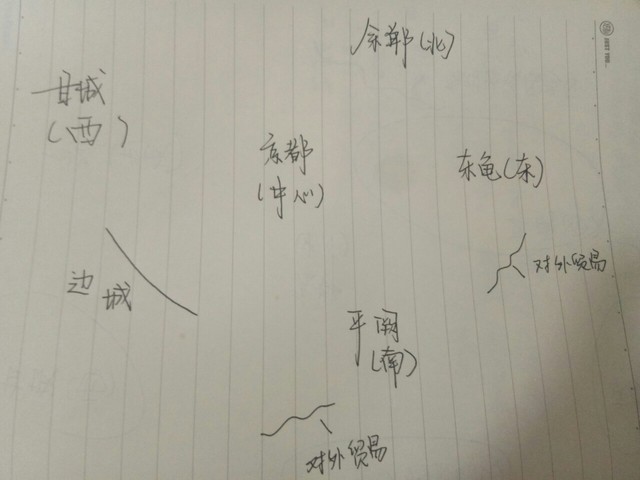 余郸(北)
甘城
(西)
京都
(中心)
东龟(东)
对外贸易
边城
平阁
(南)
对外贸易